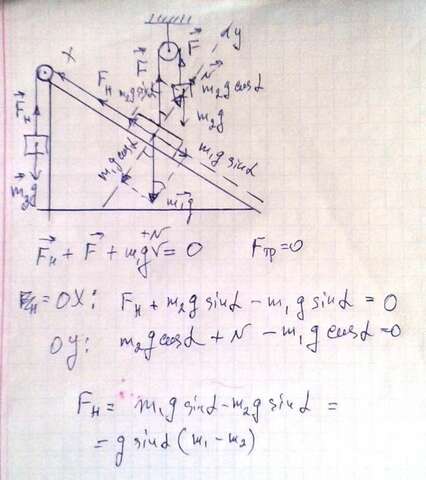 X
y
F⃗
F⃗
N⃗
F_н
m₂g sinα
m₂g cosα
F⃗_н
m₂g
m₁g cosα
m₁g sinα
m₂g
m₁g
F⃗_н + F⃗ + m₁g⃗ + N⃗ = 0     F_тр = 0
OX: F_н + m₂g sinα − m₁g sinα = 0
OY: m₂g cosα + N − m₁g cosα = 0
F_н = m₁g sinα − m₂g sinα =
= g sinα (m₁ − m₂)